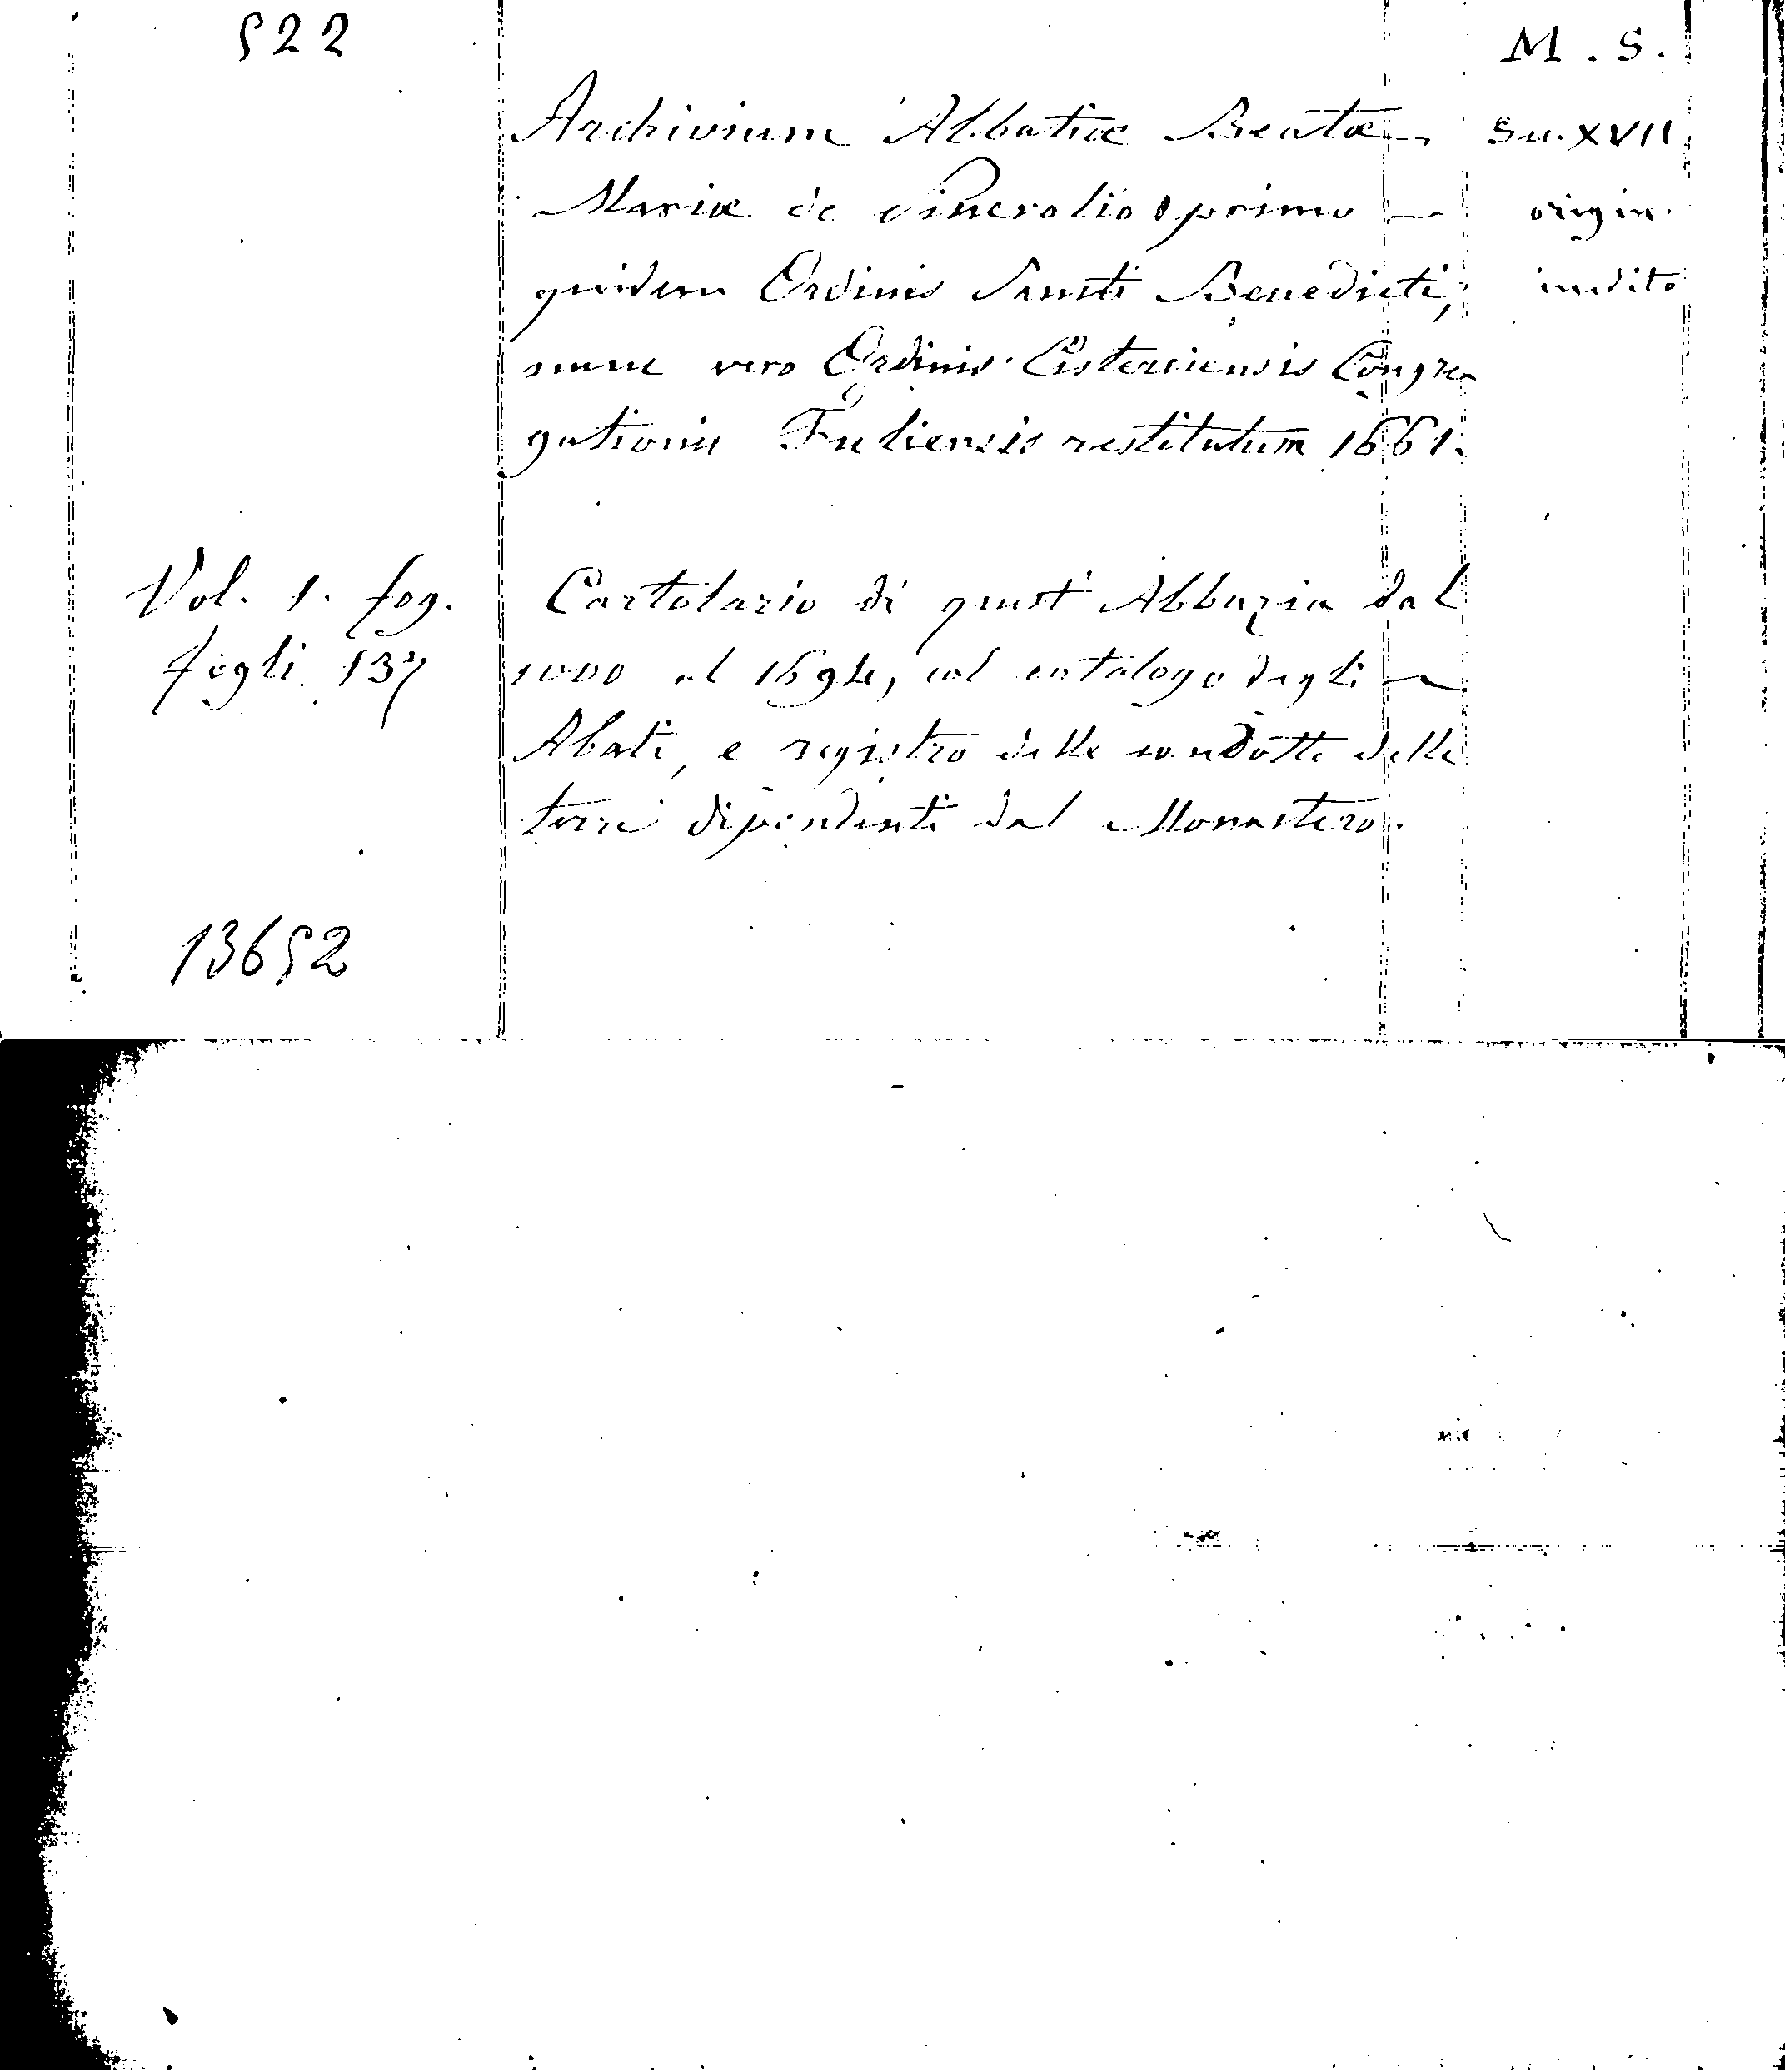 522
M. S.
Archivium Abbatiæ Beatæ
Sec. XVII
Mariæ de Pinerolio primo
origin.
quidem Ordinis Sancti Benedicti,
inedito
nunc vero Ordinis Cisterciensis Congre
gationis Fuliensis restitutum 1661.
Vol. 1. fog.
Cartolario di quest' Abbazia dal
fogli 137
1000 al 1694, col catalogo degli
Abati, e registro delle condotte delle
terre dipendenti dal Monastero.
13652